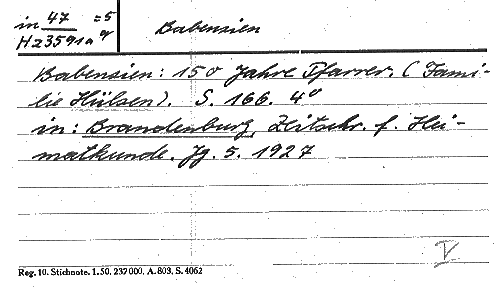 in 47 =5
Hz3591a q
Babensien
Babensien: 150 Jahre Pfarrer. (Fami-
lie Hülsen). S. 166. 4°
in: Brandenburg, Zeitschr. f. Hei-
matkunde. Jg. 5. 1927
V
Reg. 10. Stichnote. 1. 50. 237000. A. 803. S. 4062